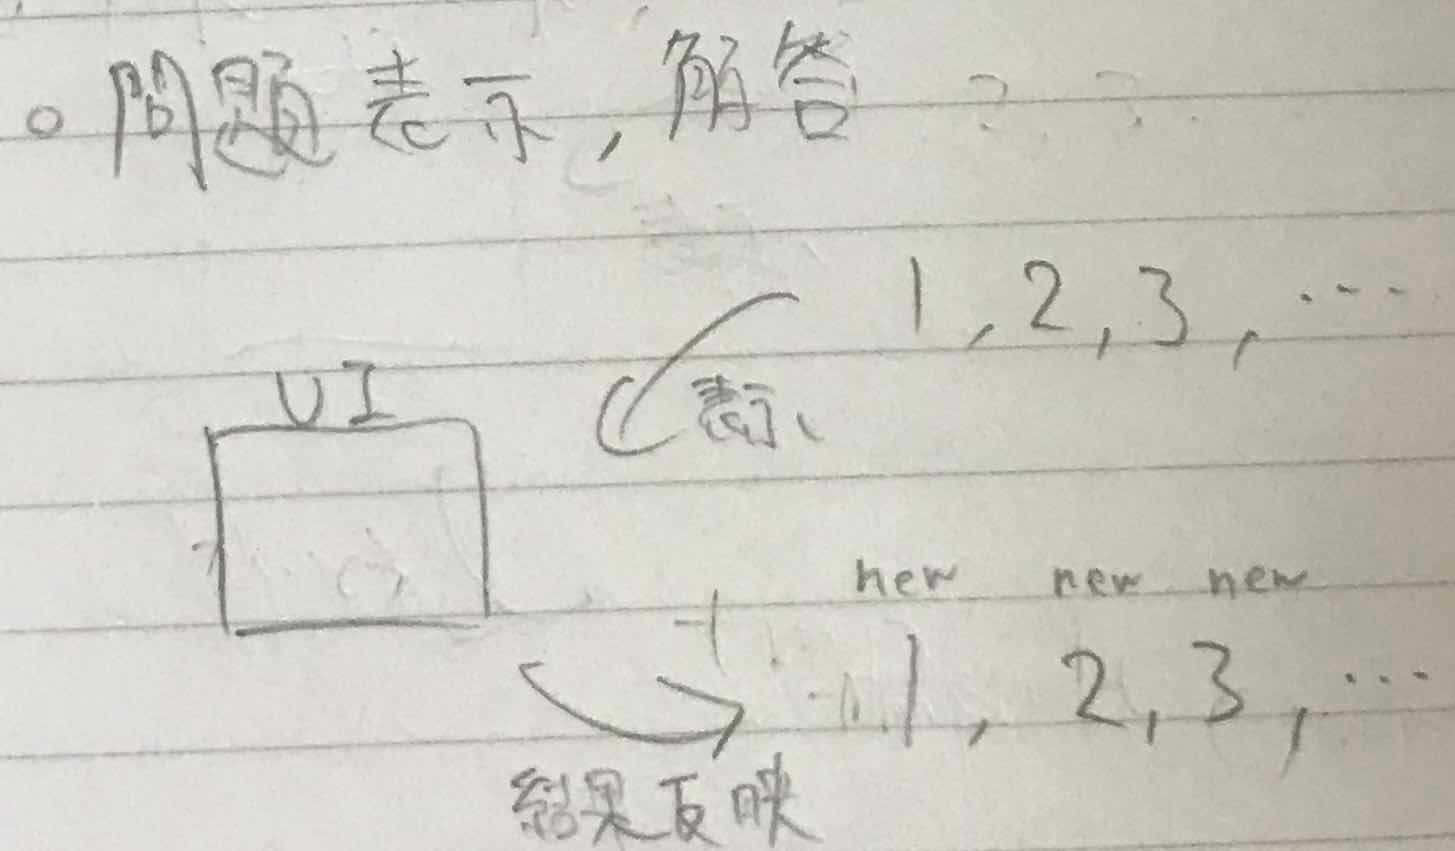 ○ 問題表示, 解答
1, 2, 3, …
UI
表示
new new new
1, 2, 3, …
結果反映